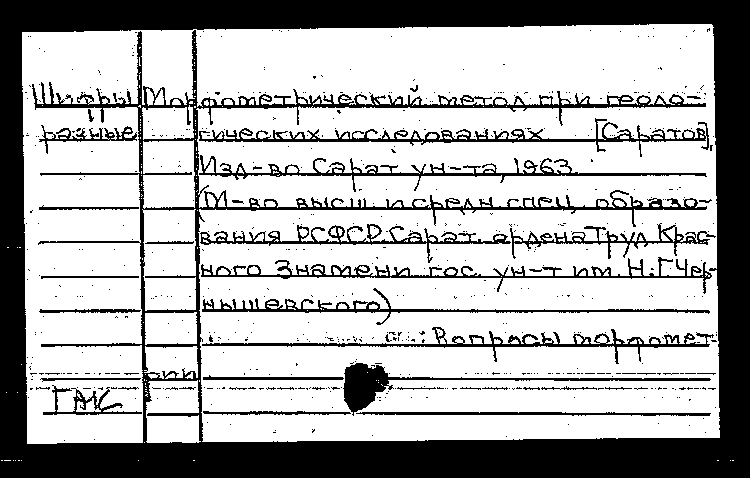 Шифры Морфометрический метод при геоло-
разные гических исследованиях [Саратов],
Изд-во Сарат ун-та, 1963.
(М-во высш. и средн. спец. образо-
вания РСФСР. Сарат. ордена Труд. Крас-
ного Знамени гос. ун-т им. Н.Г Чер-
нышевского)
: Вопросы морфомет-
рии
ГАК